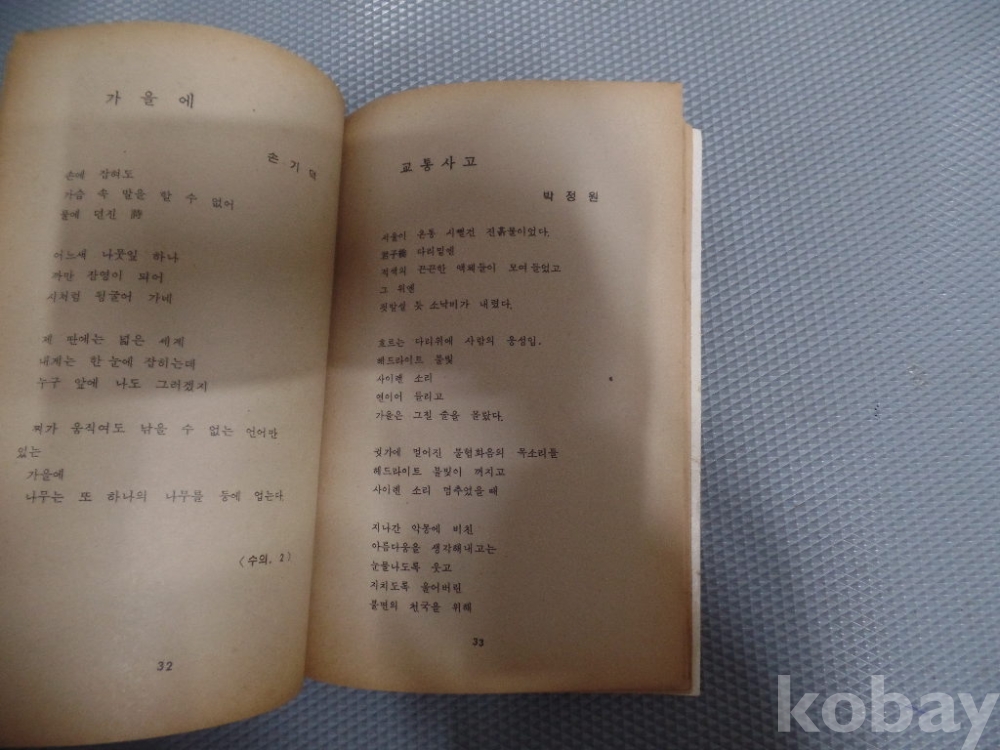 가 을 에
손 기 덕
손에 잡혀도
가슴 속 말을 할 수 없어
물에 던진 詩
어느새 나뭇잎 하나
까만 점멸이 되어
시처럼 뒹굴어 가네
제 딴에는 넓은 세계
내게는 한 눈에 잡히는데
누구 앞에 나도 그러겠지
찌가 움직여도 낚을 수 없는 언어만
있는
가을에
나무는 또 하나의 나무를 등에 업는다.
(수의. 2)
32
교통사고
박 정 원
서울이 온통 시뻘건 진흙물이었다.
다리밑엔
적색의 끈끈한 액체들이 모여들었고
그 위엔
짓밟힐 듯 소낙비가 내렸다.
흐르는 다리위에 사람의 웅성임.
헤드라이트 불빛
사이렌 소리
연이어 들리고
가을은 그칠 줄을 몰랐다.
귓가에 멀어진 불협화음의 목소리들
헤드라이트 불빛이 꺼지고
사이렌 소리 멈추었을 때
지나간 악몽에 비친
아름다움을 생각해내고는
눈물나도록 웃고
지치도록 울어버린
불변의 천국을 위해
33
kobay